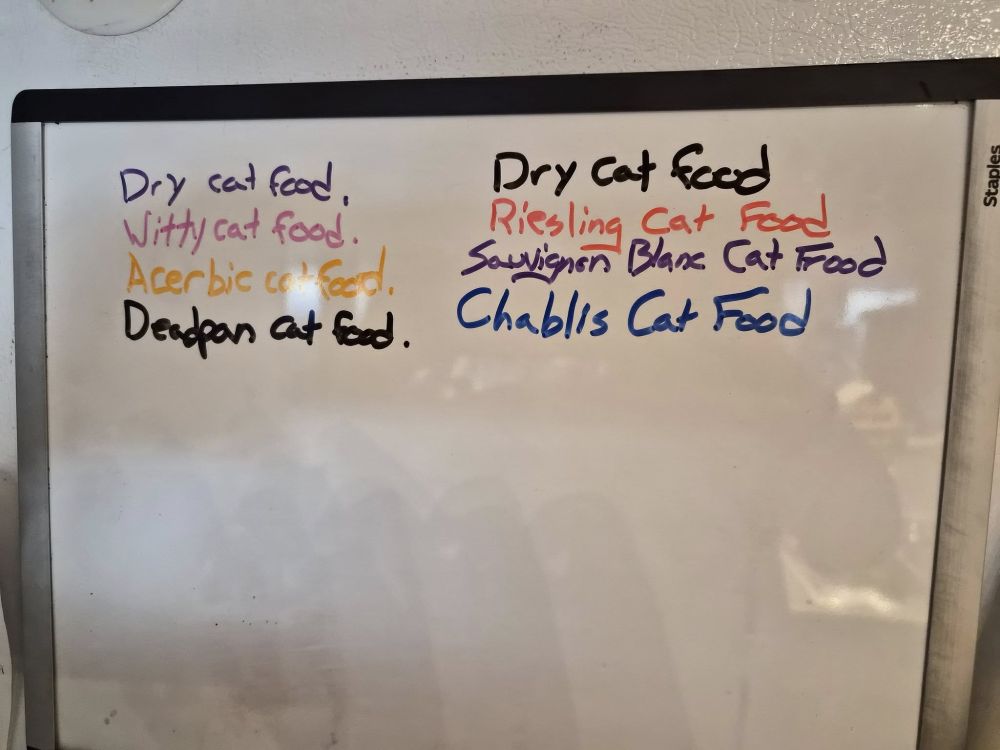 Dry cat food.
Witty cat food.
Acerbic cat food.
Deadpan cat food.
Dry cat food
Riesling Cat Food
Sauvignon Blanc Cat Food
Chablis Cat Food
Staples